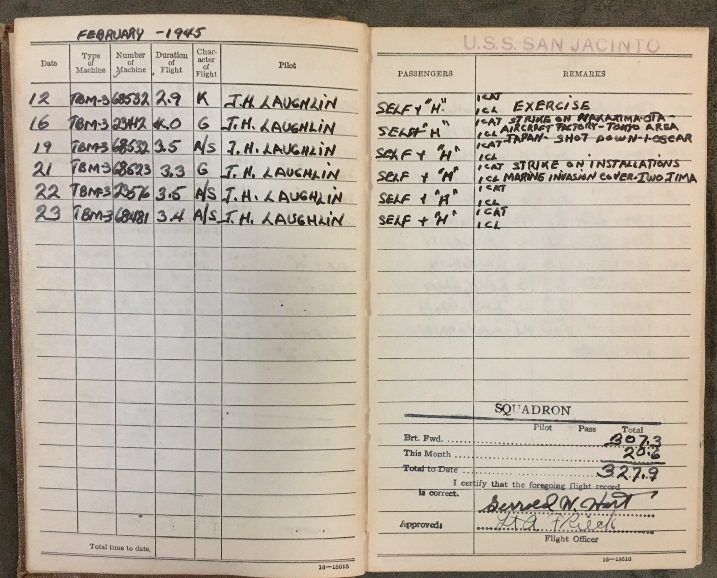 FEBRUARY - 1945
Date Type of Machine Number of Machine Duration of Flight Character of Flight Pilot
12 TBM-3 68532 2.9 K J.H. LAUGHLIN
16 TBM-3 23412 4.0 G J.H. LAUGHLIN
19 TBM-3 68532 3.5 A/S J.H. LAUGHLIN
21 TBM-3 68523 3.3 G J.H. LAUGHLIN
22 TBM-3 3.5 A/S J.H. LAUGHLIN
23 TBM-3 68481 3.4 A/S J.H. LAUGHLIN
Total time to date
16—15616
U.S.S. SAN JACINTO
PASSENGERS REMARKS
SELF + "H" 1 CAT
1 CL EXERCISE
SELF + "H" 1 CAT STRIKE ON NAKAJIMA-OTA-
1 CL AIRCRAFT FACTORY-TOKYO AREA
SELF + "H" 1 CAT JAPAN- SHOT DOWN-1-OSCAR
1 CL
SELF + "H" 1 CAT STRIKE ON INSTALLATIONS
1 CL MARINE INVASION COVER-IWO JIMA
SELF + "H" 1 CAT
1 CL
SELF + "H" 1 CAT
1 CL
SQUADRON
Pilot Pass Total
Brt. Fwd. 307.3
This Month 20.6
Total to Date 327.9
I certify that the foregoing flight record
is correct.
Gerrold W. Hart
Approved:
Flight Officer
16—15616